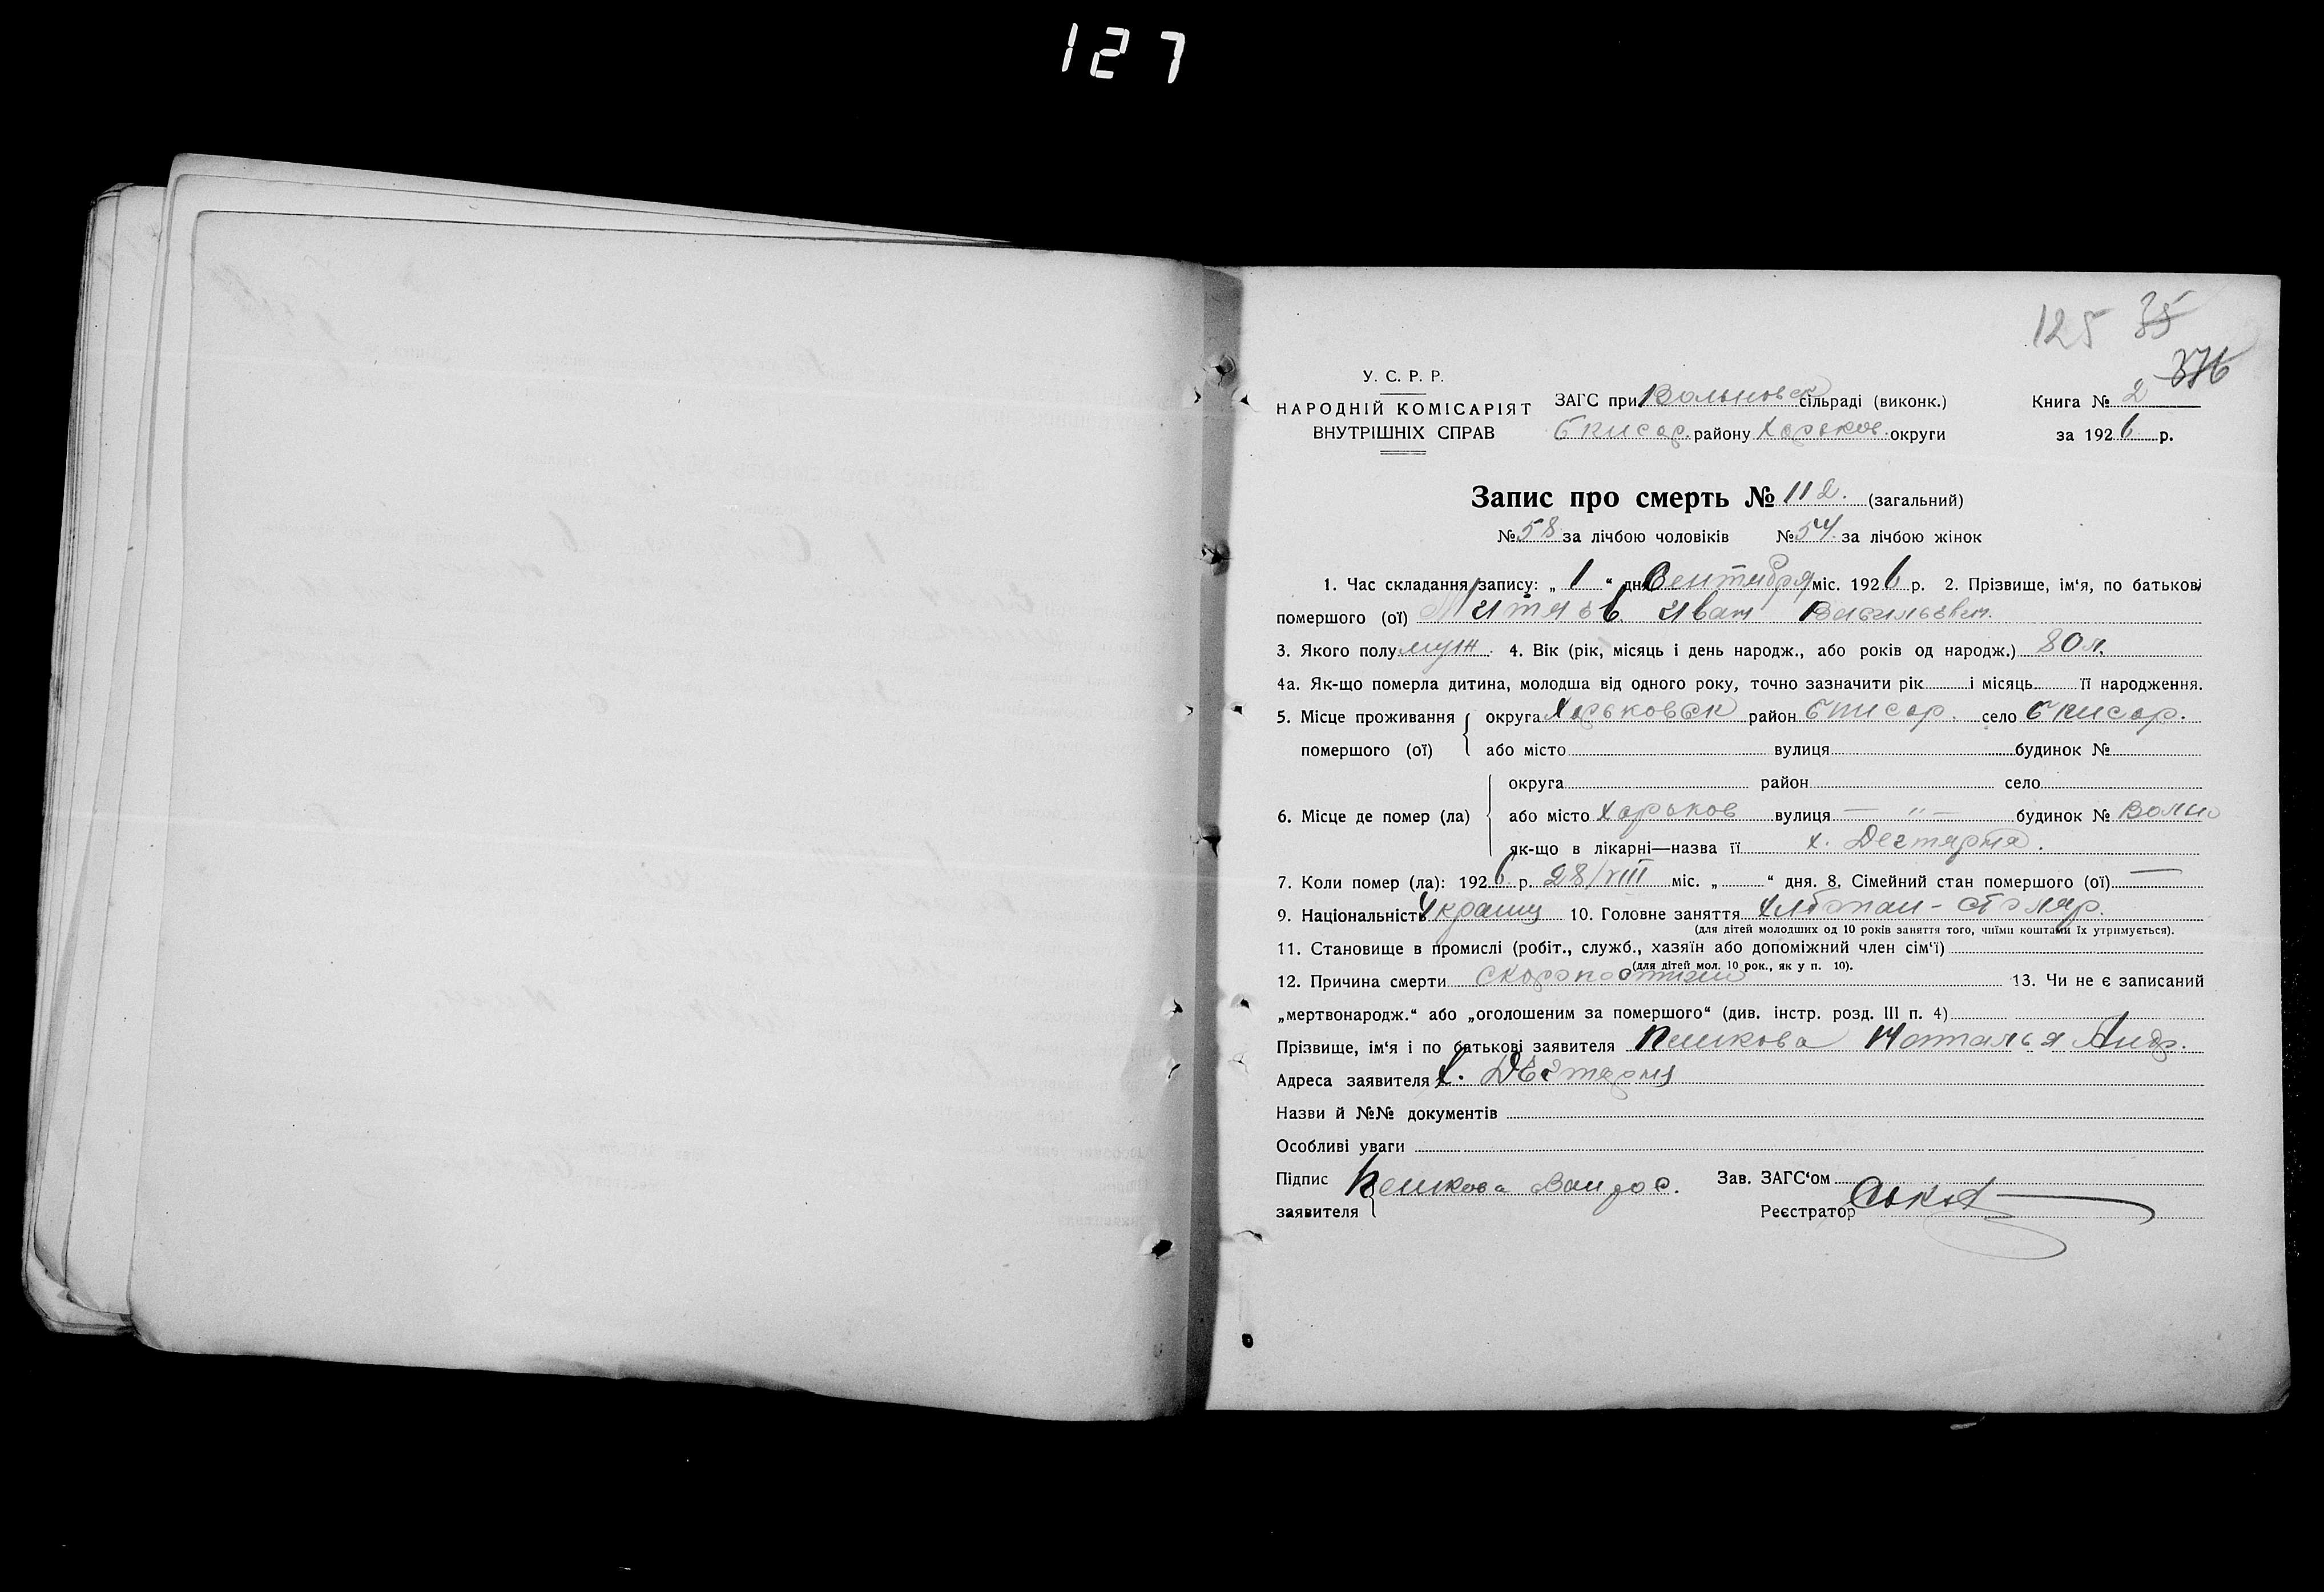 127
125 35
376
У. С. Р. Р.
НАРОДНІЙ КОМІСАРІЯТ
ВНУТРІШНІХ СПРАВ
ЗАГС при Вольновск сільраді (виконк.)
району Харьков. округи
Книга № 2
за 1926 р.
Запис про смерть № 112. (загальний)
№ 58 за лічбою чоловіків № 54. за лічбою жінок
1. Час складання запису: „ 1 “ дн Сентября міс. 1926 р. 2. Прізвище, ім‘я, по батькові
помершого (ої) Иван Васильевич.
3. Якого полу муж. 4. Вік (рік, місяць і день народж., або років од народж.) 80 л.
4а. Як-що померла дитина, молодша від одного року, точно зазначити рік і місяць її народження.
5. Місце проживання
помершого (ої)
округа Харьковск район село
або місто вулиця будинок №
6. Місце де помер (ла)
округа район село
або місто Харьков вулиця — „ — будинок №
як-що в лікарні—назва її х. Дегтярня.
7. Коли помер (ла): 1926 р. 28/VIII міс. „ “ дня. 8. Сімейний стан помершого (ої) —
9. Національність Украинц 10. Головне заняття столяр.
(для дітей молодших од 10 років заняття того, чиїми коштами їх утримується).
11. Становище в промислі (робіт., служб., хазяїн або допоміжний член сім‘ї)
(для дітей мол. 10 рок., як у п. 10).
12. Причина смерти 13. Чи не є записаний
„мертвонародж.“ або „оголошеним за помершого“ (див. інстр. розд. III п. 4)
Прізвище, ім‘я і по батькові заявителя Пешкова Наталья Андр.
Адреса заявителя х. Дегтярня
Назви й №№ документів
Особливі уваги
Підпис
заявителя
Пешкова
Зав. ЗАГС‘ом
Реєстратор